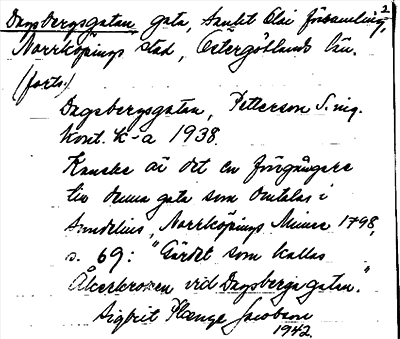 Dagsbergsgatan, gata, Sankt Olai församling, 2
Norrköpings stad, Östergötlands län.
(forts.)
Dagsbergsgatan, Petterson S. ing.
kont. K-a 1938.
Kanske är det en föregångare
till denna gata som omtalas i
Sundelius, Norrköpings Minne 1798,
s. 69: "Gärdet som kallas
Åkerkroken vid Dagsbergs gatan."
Sigbrit Plænge Jacobson
1942.